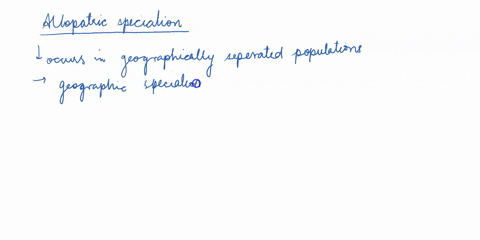 Allopatric speciation
↓ occurs in geographically seperated populations
→ geographic speciatio